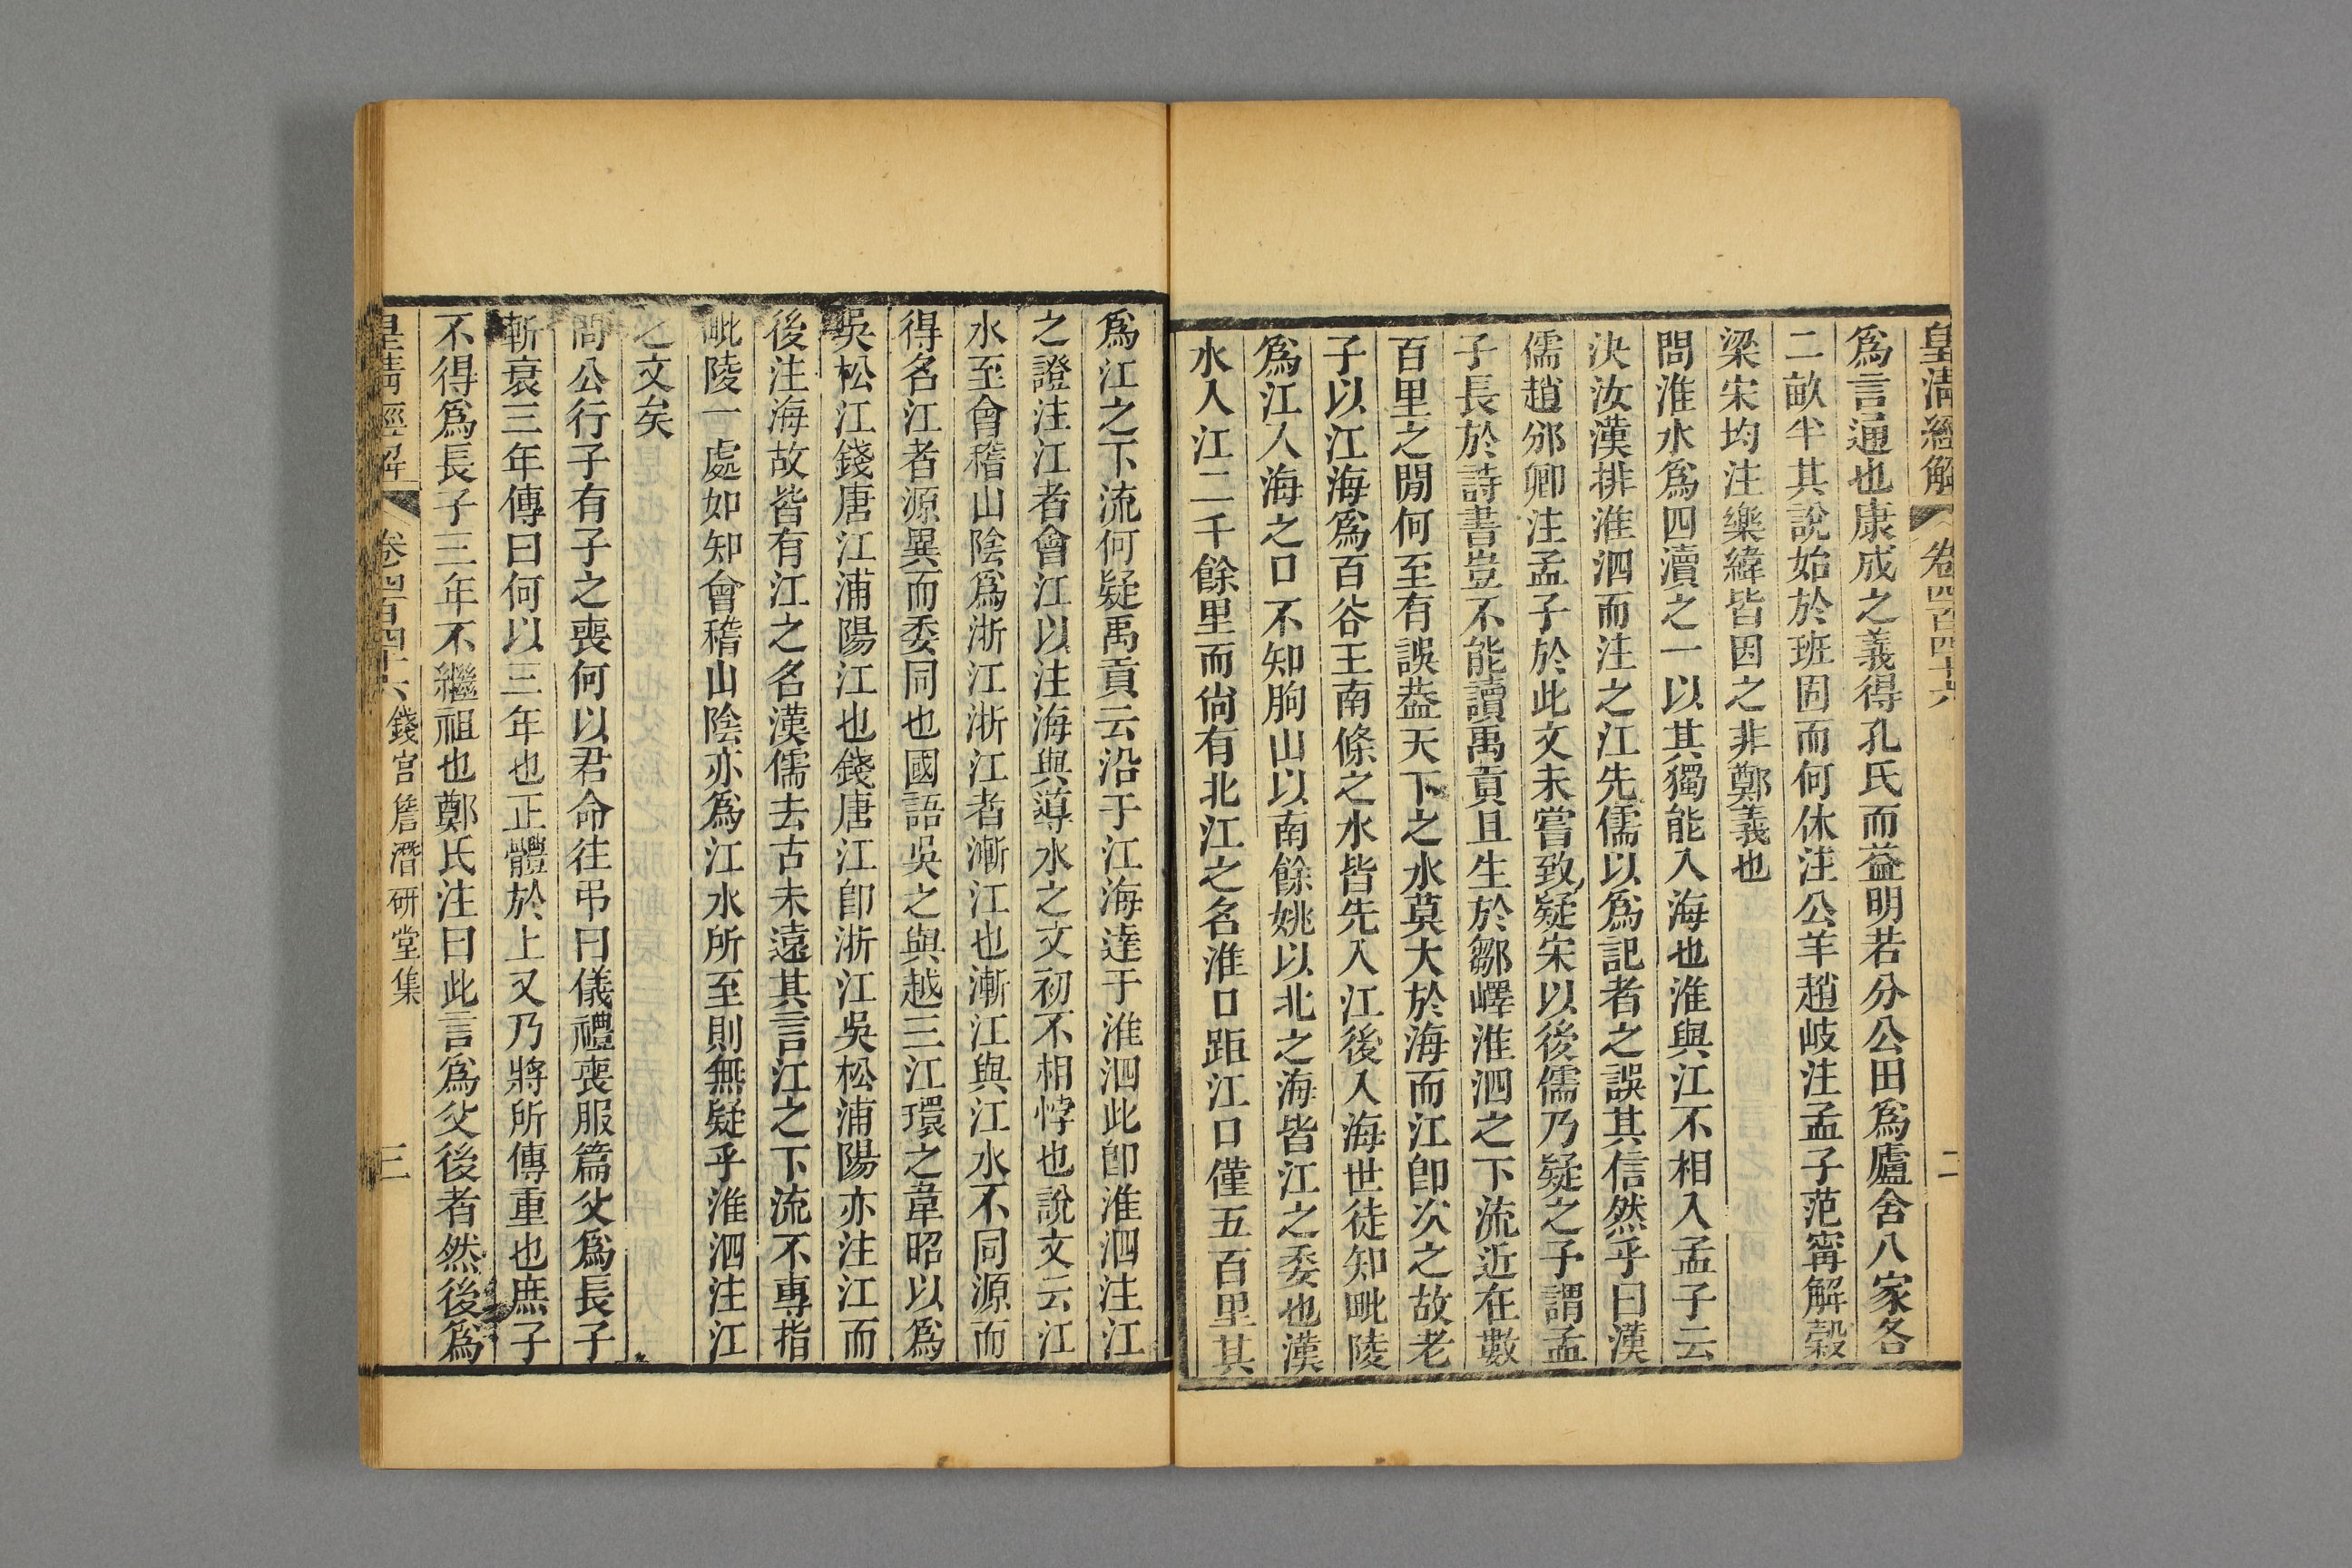 皇清經解 卷四百四十六 二
爲言通也康成之義得孔氏而益明若分公田爲廬舍八家各
二畝半其說始於班固而何休注公羊趙岐注孟子范甯解穀
梁宋均注樂緯皆因之非鄭義也
問淮水爲四瀆之一以其獨能入海也淮與江不相入孟子云
決汝漢排淮泗而注之江先儒以爲記者之誤其信然乎曰漢
儒趙邠卿注孟子於此文未嘗致疑宋以後儒乃疑之予謂孟
子長於詩書豈不能讀禹貢且生於鄒嶧淮泗之下流近在數
百里之閒何至有誤葢天下之水莫大於海而江卽次之故老
子以江海爲百谷王南條之水皆先入江後入海世徒知毗陵
爲江入海之口不知朐山以南餘姚以北之海皆江之委也漢
水入江二千餘里而尙有北江之名淮口距江口僅五百里其
爲江之下流何疑禹貢云沿于江海達于淮泗此卽淮泗注江
之證注江者會江以注海與導水之文初不相悖也說文云江
水至會稽山陰爲浙江浙江者漸江也漸江與江水不同源而
得名江者源異而委同也國語吳之與越三江環之韋昭以爲
吳松江錢唐江浦陽江也錢唐江卽浙江吳松浦陽亦注江而
後注海故皆有江之名漢儒去古未遠其言江之下流不專指
毗陵一處如知會稽山陰亦爲江水所至則無疑乎淮泗注江
之文矣
問公行子有子之喪何以君命往弔曰儀禮喪服篇父爲長子
斬衰三年傳曰何以三年也正體於上又乃將所傳重也庶子
不得爲長子三年不繼祖也鄭氏注曰此言爲父後者然後爲
皇清經解 卷四百四十六 錢宫詹潛研堂集 三